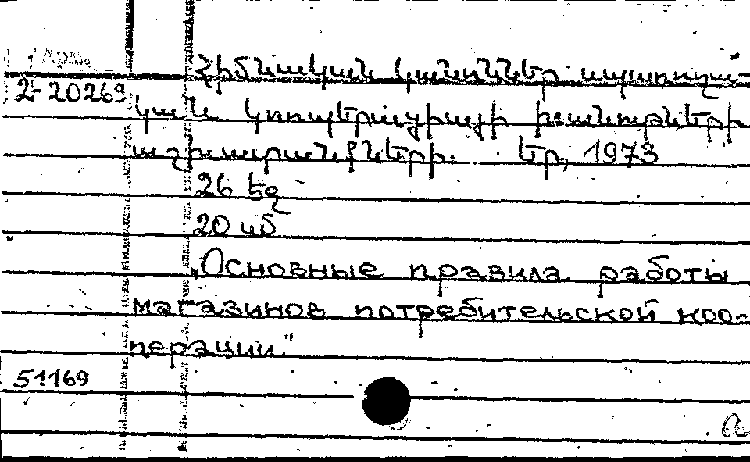 Հիմնական կանոններ սպառողա-
2-20269
կան կոոպերացիայի խանութների
աշխատանքների. Եր, 1973
26 եջ
20 սմ
„Основные правила работы
магазинов потребительской коо-
перации"
51169